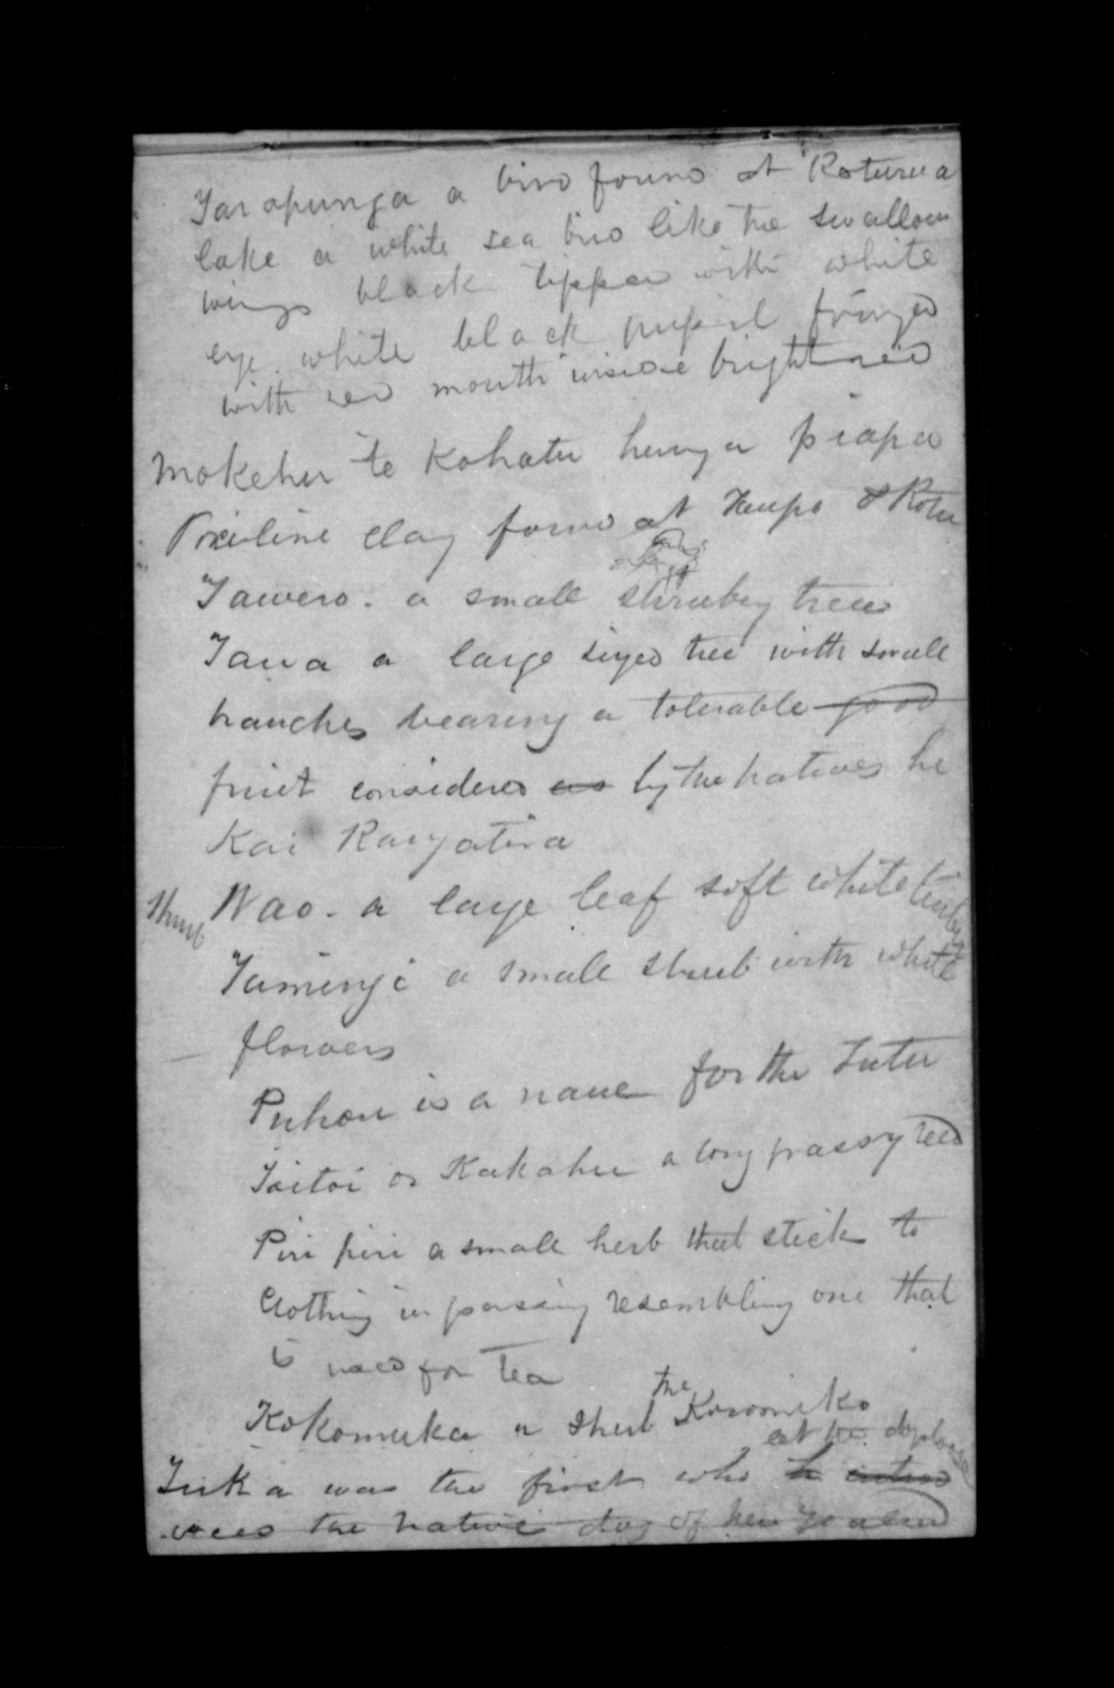 Tarapunga a bird found at Roturua
lake a white sea bird like the swallow
wings black tipped with white
eye white black pupil fringed
with red mouth inside bright red
Mokehu te Kohatu hunga piapa
clay found at Taupo & Rotu
Tawero - a small shrubby tree
Tawa a large sized tree with small
branches bearing a tolerable good
fruit considered as by the natives he
Kai Rangatira
Shrub Wao - a large leaf soft white timber
Taminge a small shrub with white
flowers
Puhou is a name for the Tutu
Toitoi or Kakaho a long grassy reed
Piri piri a small herb that stick to
Clothing in passing resembling one that
is used for Tea
Kokomuka a shrub the Koromiko
Tuka was the first who
the native dog of New Zealand